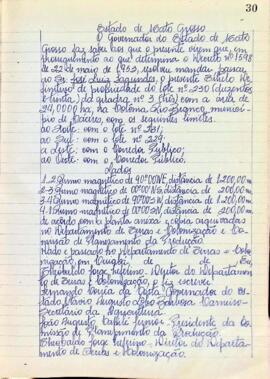 30
Estado de Mato Grosso
O Governador do Estado de Mato
Grosso faz saber aos que o presente virem que, em
cumprimento ao que determina o Decreto nº 1598
de 22 de maio de 1953, mandou passar
ao Sr. José Luiz Fagundes, o presente Título De
finitivo de propriedade do lote nº 230 (duzentos
e trinta) da quadra nº 3 (três) com a área de
24,0000 ha, na Colônia Rio Branco, municí-
pio de Cáceres, com os seguintes limites:
ao Norte: com o lote nº 231;
ao Sul: com o lote nº 229;
a Leste: com o Corredor Público;
ao Oeste: com o Corredor Público.
Lados
1-2 Rumo magnético de 90°00'NE, distância de 1.200,00 m
2-3 Rumo magnético de 00°00'NS, distância de 200,00 m
3-4 Rumo magnético de 90°00'SW, distância de 1.200,00 m
4-1 Rumo magnético de 00°00'SN, distância de 200,00 m
de acordo com a planta anexa e cópia arquivada
no Departamento de Terras e Colonização e Co-
missão de Planejamento da Produção.
Dado e passado no Departamento de Terras e Colo-
nização em Cuiabá, de Eu,
Jorge Sufrino, Diretor do Departamen-
to de Terras e Colonização, o fiz escrever.
Fernando Corrêa da Costa, Governador do Es-
tado Mario Augusto
Secretário da Agricultura
João Augusto Capilé Junior - Presidente da Co-
missão de Planejamento da Produção.
Jorge Sufrino - Diretor do Departa-
mento de Terras e Colonização.